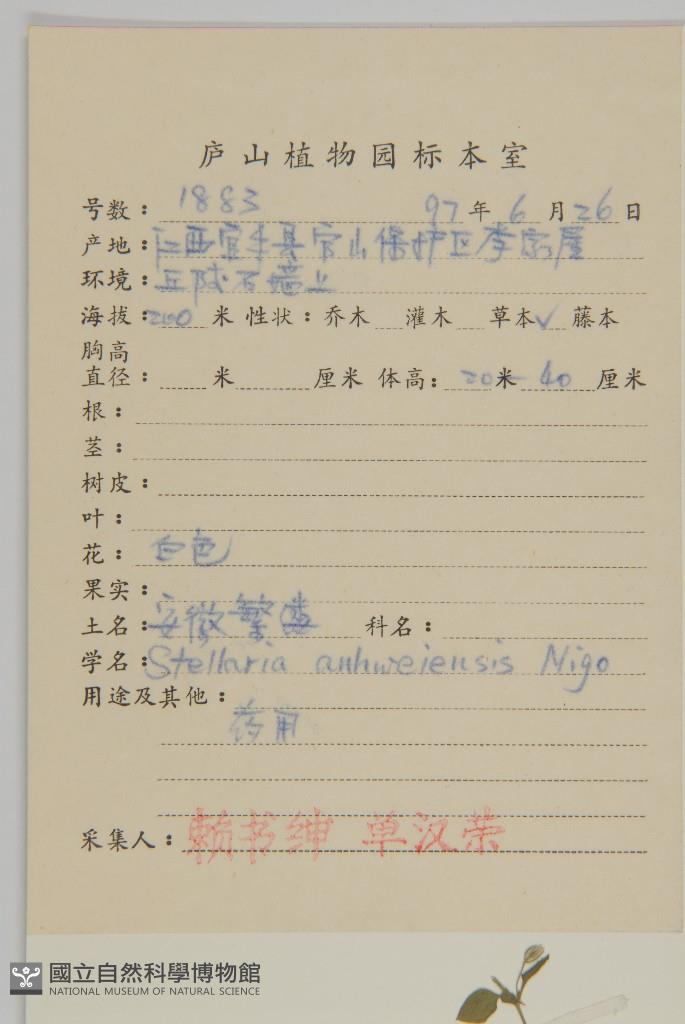 庐山植物园标本室
号数： 1883 97 年 6 月 26 日
产地： 江西宜丰县官山保护区李家屋
环境： 丘陵石墙上
海拔： 200 米 性状： 乔木 灌木 草本 ✓ 藤本
胸高
直径： 米 厘米 体高： 20 米 40 厘米
根：
茎：
树皮：
叶：
花： 白色
果实：
土名： 安徽繁缕 科名：
学名： Stellaria anhweiensis Migo
用途及其他：
药用
采集人： 赖书绅 单汉荣
國立自然科學博物館
NATIONAL MUSEUM OF NATURAL SCIENCE